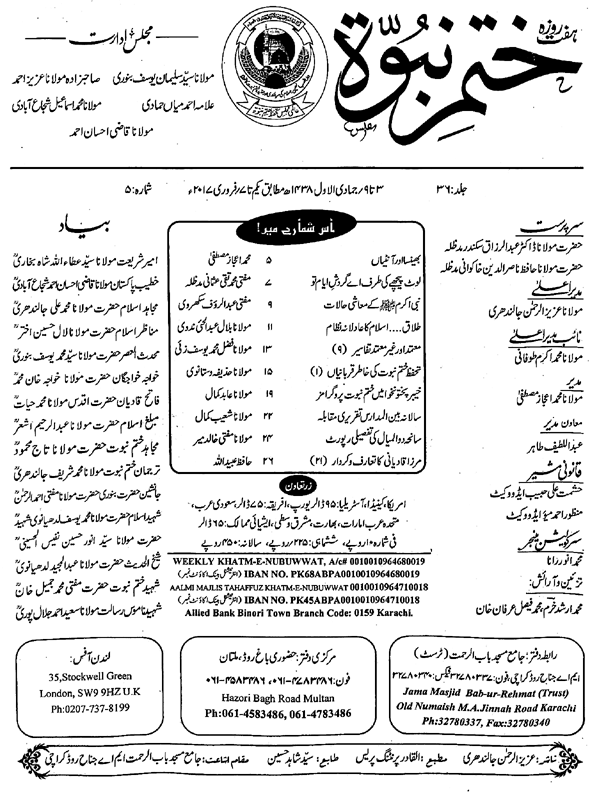 ہفت روزہ
ختم نبوۃ
مجلس ادارت
مولانا سید سلیمان یوسف بنوری صاحبزادہ مولانا عزیز احمد
علامہ احمد میاں حمادی مولانا محمد اسماعیل شجاع آبادی
مولانا قاضی احسان احمد
جلد: ۳۶ ۳ تا ۹ / جمادی الاول ۱۴۳۸ھ مطابق یکم تا ۷ / فروری ۲۰۱۷ء شمارہ: ۵
سرپرست
حضرت مولانا ڈاکٹر عبدالرزاق سکندر مدظلہ
حضرت مولانا حافظ ناصر الدین خاکوانی مدظلہ
مدیر اعلیٰ
مولانا عزیز الرحمٰن جالندھری
نائب مدیر اعلیٰ
مولانا محمد اکرم طوفانی
مدیر
مولانا محمد اعجاز مصطفیٰ
معاون مدیر
عبداللطیف طاہر
قانونی مشیر
حشمت علی حبیب ایڈووکیٹ
منظور احمد میؤ ایڈووکیٹ
سرکولیشن منیجر
محمد انور رانا
تزئین و آرائش:
محمد ارشد خرم، محمد فیصل عرفان خان
اس شمارے میں!
بھینسا اور آنتیاں ۵ محمد اعجاز مصطفیٰ
لوٹ پیچھے کی طرف اے گردش ایام تو ۷ مفتی محمد تقی عثمانی مدظلہ
نبی اکرم ﷺ کے معاشی حالات ۹ مفتی عبدالرؤف سکھروی
طلاق.... اسلام کا عادلانہ نظام ۱۱ مولانا بلال عبدالحئی ندوی
معتمد اور غیر معتمد تفاسیر (۹) ۱۳ مولانا فضل محمد یوسف زئی
تحفظ ختم نبوت کی خاطر قربانیاں (۱) ۱۵ مولانا حذیفہ وستانوی
خیبر پختونخوا میں ختم نبوت پروگرامز ۱۹ مولانا عابد کمال
سالانہ بین المدارس تقریری مقابلہ ۲۲ مولانا شعیب کمال
سانحہ دوالمیال کی تفصیلی رپورٹ ۲۴ مولانا مفتی خالد میر
مرزا قادیانی کا تعارف و کردار (۲۱) ۲۶ حافظ عبیداللہ
زر تعاون
امریکا، کینیڈا، آسٹریلیا: ۹۵ ڈالر یورپ، افریقہ: ۷۵ ڈالر، سعودی عرب،
متحدہ عرب امارات، بھارت، مشرق وسطی، ایشیائی ممالک: ۶۵ ڈالر
فی شمارہ ۱۰ روپے، ششماہی: ۲۲۵ روپے، سالانہ: ۳۵۰ روپے
WEEKLY KHATM-E-NUBUWWAT, A/c# 0010010964680019
IBAN NO. PK68ABPA0010010964680019 (انٹرنیشنل بینک اکاؤنٹ نمبر)
AALMI MAJLIS TAHAFFUZ KHATM-E-NUBUWWAT 0010010964710018
IBAN NO. PK45ABPA0010010964710018 (انٹرنیشنل بینک اکاؤنٹ نمبر)
Allied Bank Binori Town Branch Code: 0159 Karachi.
بیاد
امیر شریعت مولانا سید عطاء اللہ شاہ بخاریؒ
خطیب پاکستان مولانا قاضی احسان احمد شجاع آبادیؒ
مجاہد اسلام حضرت مولانا محمد علی جالندھریؒ
مناظر اسلام حضرت مولانا لال حسین اخترؒ
محدث العصر حضرت مولانا سید محمد یوسف بنوریؒ
خواجہ خواجگان حضرت مولانا خواجہ خان محمدؒ
فاتح قادیان حضرت اقدس مولانا محمد حیاتؒ
مبلغ اسلام حضرت مولانا عبدالرحیم اشعرؒ
مجاہد ختم نبوت حضرت مولانا تاج محمودؒ
ترجمان ختم نبوت حضرت مولانا محمد شریف جالندھریؒ
جانشین حضرت بنوری حضرت مولانا مفتی احمد الرحمٰنؒ
شہید اسلام حضرت مولانا محمد یوسف لدھیانوی شہیدؒ
حضرت مولانا سید انور حسین نفیس الحسینیؒ
شیخ الحدیث حضرت مولانا عبدالمجید لدھیانویؒ
شہید ختم نبوت حضرت مفتی محمد جمیل خانؒ
شہید ناموس رسالت مولانا سعید احمد جلال پوریؒ
رابطہ دفتر: جامع مسجد باب الرحمت (ٹرسٹ)
ایم اے جناح روڈ کراچی فون: ۳۲۷۸۰۳۳۷، فیکس: ۳۲۷۸۰۳۴۰
Jama Masjid Bab-ur-Rehmat (Trust)
Old Numaish M.A.Jinnah Road Karachi
Ph:32780337, Fax:32780340
مرکزی دفتر: حضوری باغ روڈ، ملتان
فون: ۰۶۱-۴۷۸۳۴۸۶، ۰۶۱-۴۵۸۳۴۸۶
Hazori Bagh Road Multan
Ph:061-4583486, 061-4783486
لندن آفس:
35,Stockwell Green
London, SW9 9HZ U.K
Ph:0207-737-8199
ناشر: عزیز الرحمٰن جالندھری مطبع: القادر پرنٹنگ پریس طابع: سید شاہد حسین مقام اشاعت: جامع مسجد باب الرحمت ایم اے جناح روڈ کراچی